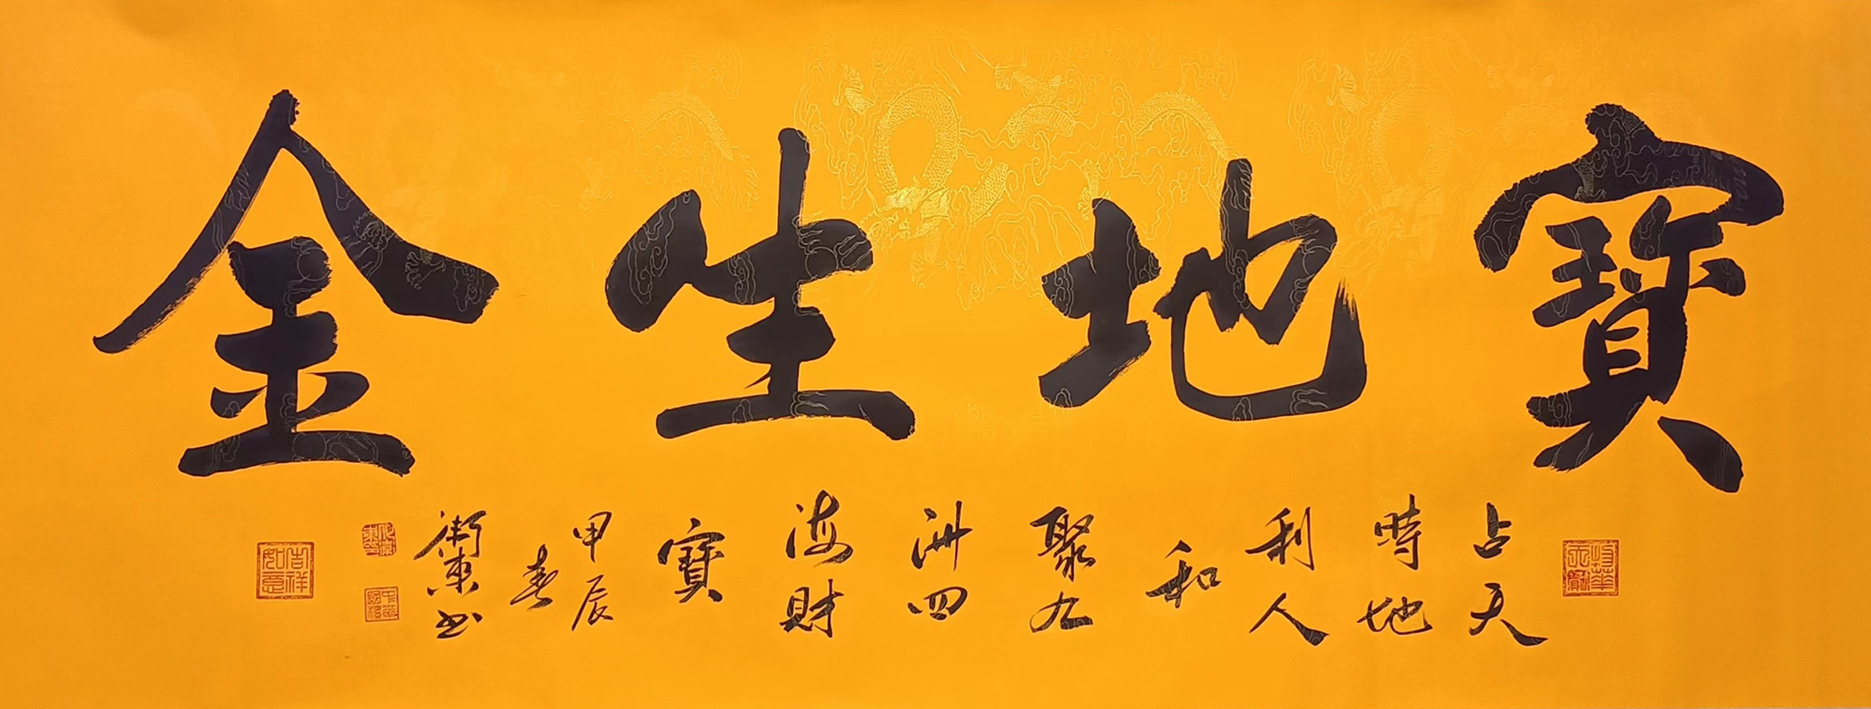 寶地生金
占天
時地
利人
和
聚九
洲四
海財
寶
甲辰
春
衛東书
吉祥如意